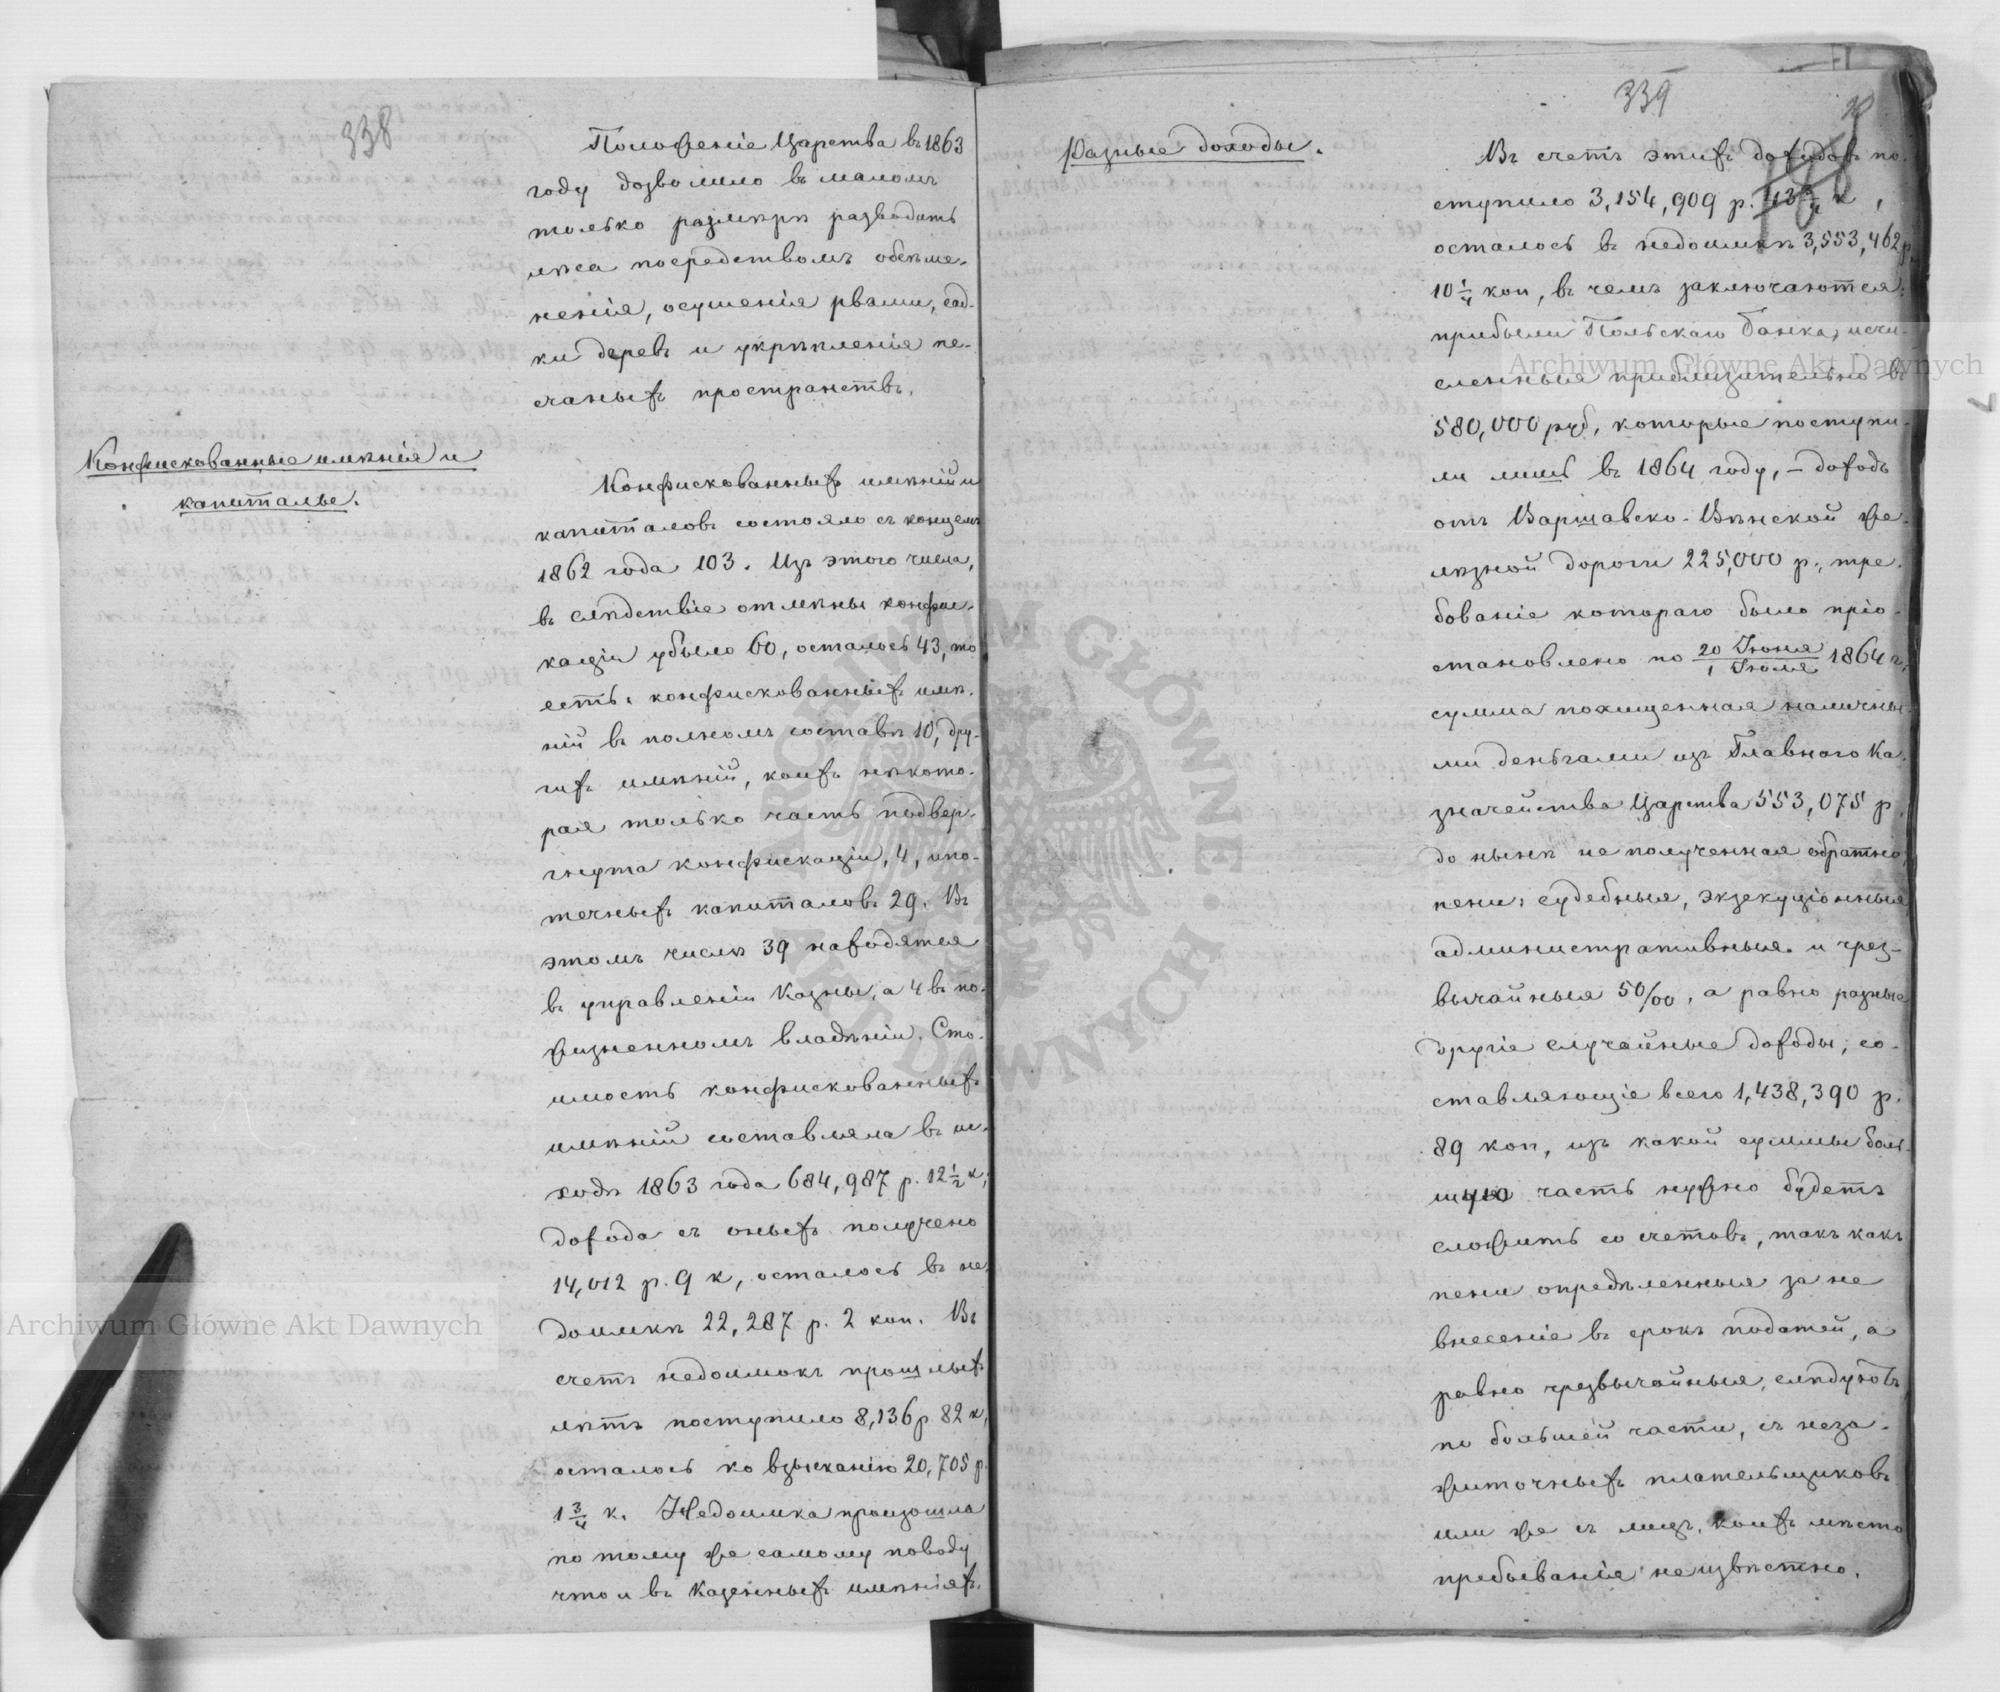 338
Положеніе Царства въ 1863
году дозволило въ маломъ
только размѣрѣ разводить
лѣса посредствомъ обсѣме-
ненія, осушенія рвами, сад-
ки деревъ и укрѣпленія пе-
счаныхъ пространствъ.
Конфискованные имѣнія и
капиталы.
Конфискованныхъ имѣній и
капиталовъ состояло съ концемъ
1862 года 103. Изъ этого числа,
въ слѣдствіе отмѣны конфис-
каціи убыло 60, осталось 43, то
есть: конфискованныхъ имѣ-
ній въ полномъ составѣ 10, дру-
гихъ имѣній, коихъ нѣкото-
рая только часть подвер-
гнута конфискаціи, 4, ипо-
течныхъ капиталовъ 29. Въ
этомъ числѣ 39 находятся
въ управленіи Казны, а 4 въ по-
жизненномъ владѣніи. Сто-
имость конфискованныхъ
имѣній составляла въ ис-
ходѣ 1863 года 684,987 р. 12 1/2 к;
дохода съ оныхъ получено
14,012 р. 9 к, осталось въ не
доимкѣ 22,287 р. 2 коп. Въ
счетъ недоимокъ прошлыхъ
лѣтъ поступило 8,136 р 82 к,
осталось ко взысканію 20,705 р.
1 3/4 к. Недоимка произошла
по тому же самому поводу
что и въ Казенныхъ имѣніяхъ.
339
Разные доходы.
Въ счетъ этихъ доходовъ по-
ступило 3,154,909 р. 43 3/4 к,
осталось въ недоимкѣ 3,553,462 р.
10 1/4 коп, въ чемъ заключаются:
прибыли Польскаго Банка, исчи-
сленныя приблизительно въ
580,000 руб, которые поступи-
ли лишь въ 1864 году, – доходъ
отъ Варшавско-Вѣнской же-
лѣзной дороги 225,000 р., тре-
бованіе котораго было пріо-
становлено по 20 Іюня / 1 Іюля 1864 г,
сумма похищенная наличны-
ми деньгами изъ Главнаго Ка-
значейства Царства 553,075 р,
до нынѣ не полученная обратно;
пени: судебныя, экзекуціонныя,
административныя и чрез-
вычайныя 50/00, а равно разные
другіе случайные доходы, со-
ставляющіе всего 1,438,390 р.
89 коп, изъ какой суммы боль-
шую часть нужно будетъ
сложить со счетовъ, такъ какъ
пени опредѣленныя за не
внесеніе въ срокъ податей, а
равно чрезвычайныя, слѣдуютъ
по большей части, съ неза-
житочныхъ плательщиковъ
или же съ лицъ, коихъ мѣсто
пребыванія неизвѣстно.
Archiwum Główne Akt Dawnych
Archiwum Główne Akt Dawnych
ARCHIWUM GŁÓWNE AKT DAWNYCH